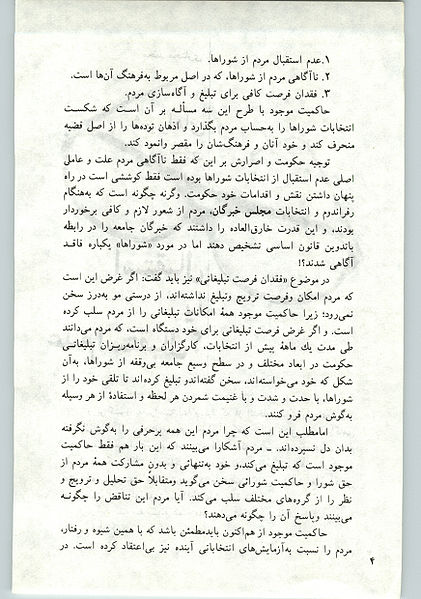 ۱.عدم استقبال مردم از شوراها.
۲. ناآگاهی مردم از شوراها، که در اصل مربوط به‌فرهنگ آن‌ها است.
۳. فقدان فرصت کافی برای تبلیغ و آگاه‌سازی مردم.
حاکمیت موجود با طرح این سه مسأله بر آن است که شکست
انتخابات شوراها را به‌حساب مردم بگذارد و اذهان توده‌ها را از اصل قضیه
منحرف کند و خود آنان و فرهنگ‌شان را مقصر وانمود کند.
توجیه حکومت و اصرارش بر این که فقط ناآگاهی مردم علت و عامل
اصلی عدم استقبال از انتخابات شوراها بوده است فقط کوششی است در راه
پنهان داشتن نقش و اقدامات خود حکومت. وگرنه چگونه است که به‌هنگام
رفراندوم و انتخابات مجلس خبرگان، مردم از شعور لازم و کافی برخوردار
بودند، و این قدرت خارق‌العاده را داشتند که خبرگان جامعه را در رابطه
باتدوین قانون اساسی تشخیص دهند اما در مورد «شوراها» یکباره فاقد
آگاهی شدند؟!
در موضوع «فقدان فرصت تبلیغاتی» نیز باید گفت: اگر غرض این است
که مردم امکان وفرصت ترویج وتبلیغ نداشته‌اند، از درستی مو به‌درز سخن
نمی‌رود؛ زیرا حاکمیت موجود همهٔ امکانات تبلیغاتی را از مردم سلب کرده
است. و اگر غرض فرصت تبلیغاتی برای خود دستگاه است، که مردم می‌دانند
طی مدت یك ماههٔ پیش از انتخابات، کارگزاران و برنامه‌ریزان تبلیغاتی
حکومت در ابعاد مختلف و در سطح وسیع جامعه بی‌وقفه از شوراها، به‌آن
شکل که خود می‌خواسته‌اند، سخن گفته‌اندو تبلیغ کرده‌اند تا تلقی خود را از
شوراها، با حدت و شدت و با غنیمت شمردن هر لحظه و استفادهٔ از هر وسیله
به‌گوش مردم فرو کنند.
امامطلب این است که چرا مردم این همه پرحرفی را به‌گوش نگرفته
بدان دل نسپرده‌اند. ـ مردم آشکارا می‌بینند که این بار هم فقط حاکمیت
موجود است که تبلیغ می‌کند،و خود به‌تنهائی و بدون مشارکت همهٔ مردم از
حق شورا و حاکمیت شورائی سخن می‌گوید ومتقابلاً حق تحلیل و ترویج و
نظر را از گروه‌های مختلف سلب می‌کند. آیا مردم این تناقض را چگونه
می‌بینند وپاسخ آن را چگونه می‌دهند؟
حاکمیت موجود از هم‌اکنون بایدمطمئن باشد که با همین شیوه و رفتار،
مردم را نسبت به‌آزمایش‌های انتخاباتی آینده نیز بی‌اعتقاد کرده است. در
۴